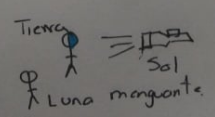 Tierra
Sol
Luna menguante.